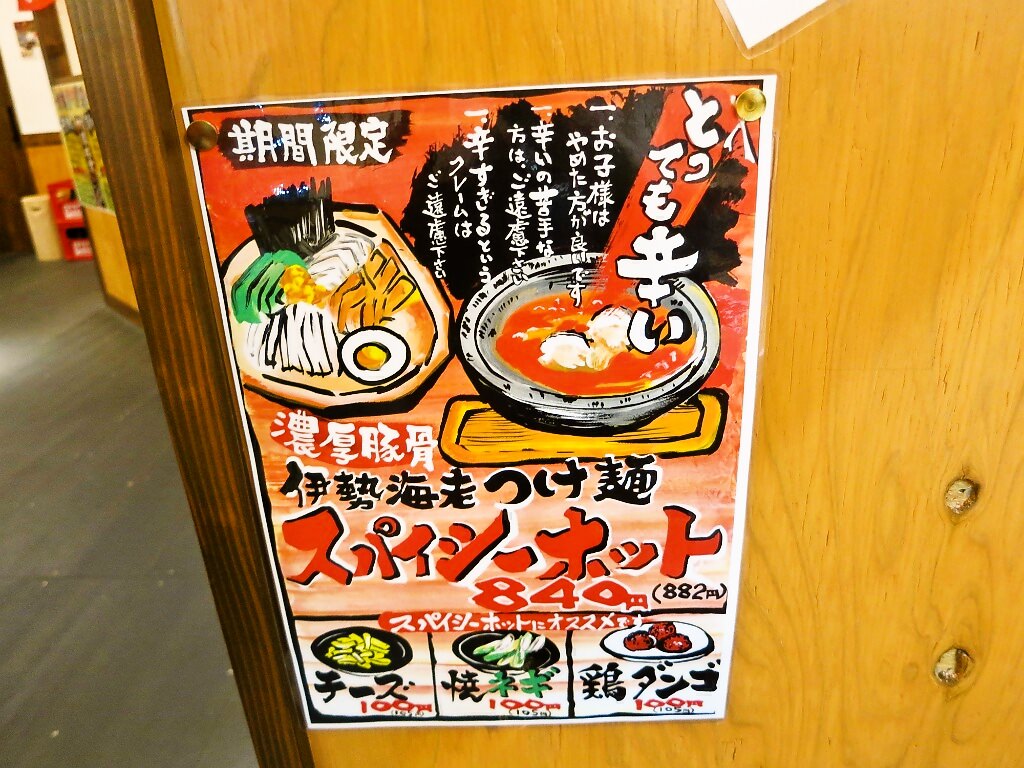 期間限定
とっても辛い
一.お子様は
やめた方が良いです
一.辛いの苦手な
方は、ご遠慮下さい
一.辛すぎるという
クレームは
ご遠慮下さい
濃厚豚骨
伊勢海老つけ麺
スパイシーホット
840円(882円)
スパイシーホットにオススメです
チーズ
100円
(105円)
焼ネギ
100円
(105円)
鶏ダンゴ
100円
(105円)